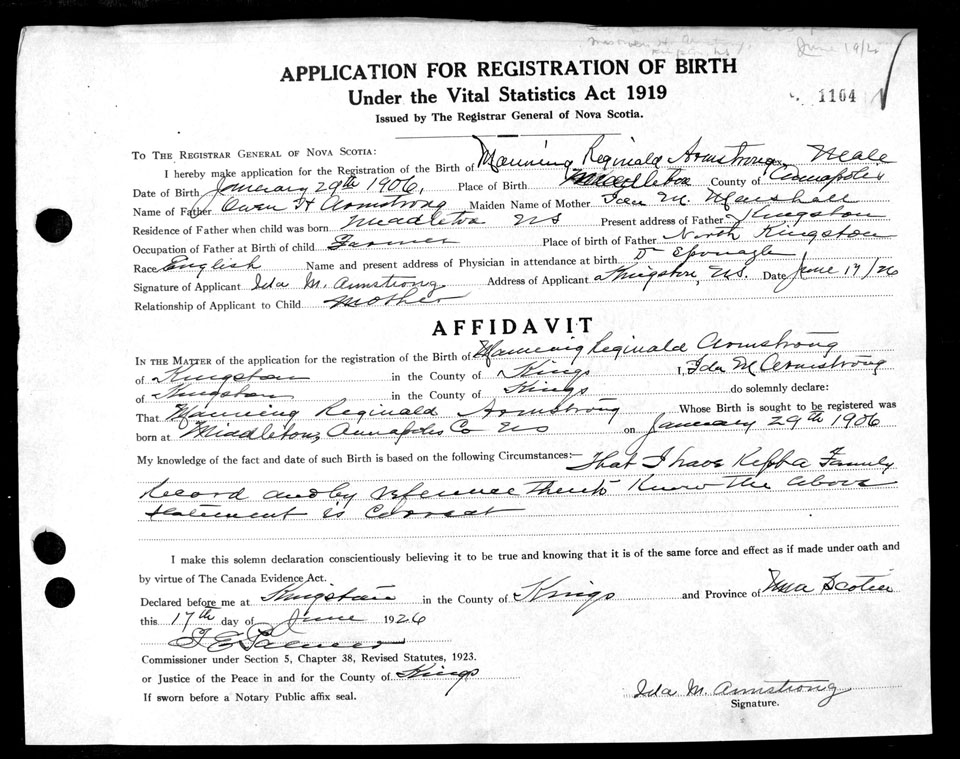 June 19/2
APPLICATION FOR REGISTRATION OF BIRTH
Under the Vital Statistics Act 1919
1104
Issued by The Registrar General of Nova Scotia.
TO THE REGISTRAR GENERAL OF NOVA SCOTIA:
I hereby make application for the Registration of the Birth of Manning Reginald Armstrong Male
Date of Birth January 29th 1906, Place of Birth Middleton County of Annapolis
Name of Father Owen H Armstrong Maiden Name of Mother Ida M. Marshall
Residence of Father when child was born Middleton NS Present address of Father Kingston
Occupation of Father at Birth of child Farmer Place of birth of Father North Kingston
Race English Name and present address of Physician in attendance at birth Dr Sponagle
Signature of Applicant Ida M. Armstrong Address of Applicant Kingston, NS. Date June 17/26
Relationship of Applicant to Child Mother
AFFIDAVIT
IN THE MATTER of the application for the registration of the Birth of Manning Reginald Armstrong
of Kingston in the County of Kings I, Ida M Armstrong
of Kingston in the County of Kings do solemnly declare:
That Manning Reginald Armstrong Whose Birth is sought to be registered was
born at Middleton, Annapolis Co NS on January 29th 1906
My knowledge of the fact and date of such Birth is based on the following Circumstances:— That I have Kept a Family
Record and by reference thereto Know the above
statement is Correct
I make this solemn declaration conscientiously believing it to be true and knowing that it is of the same force and effect as if made under oath and
by virtue of The Canada Evidence Act.
Declared before me at Kingston in the County of Kings and Province of Nova Scotia
this 17th day of June 1926
Commissioner under Section 5, Chapter 38, Revised Statutes, 1923.
or Justice of the Peace in and for the County of Kings
If sworn before a Notary Public affix seal.
Ida M. Armstrong
Signature.